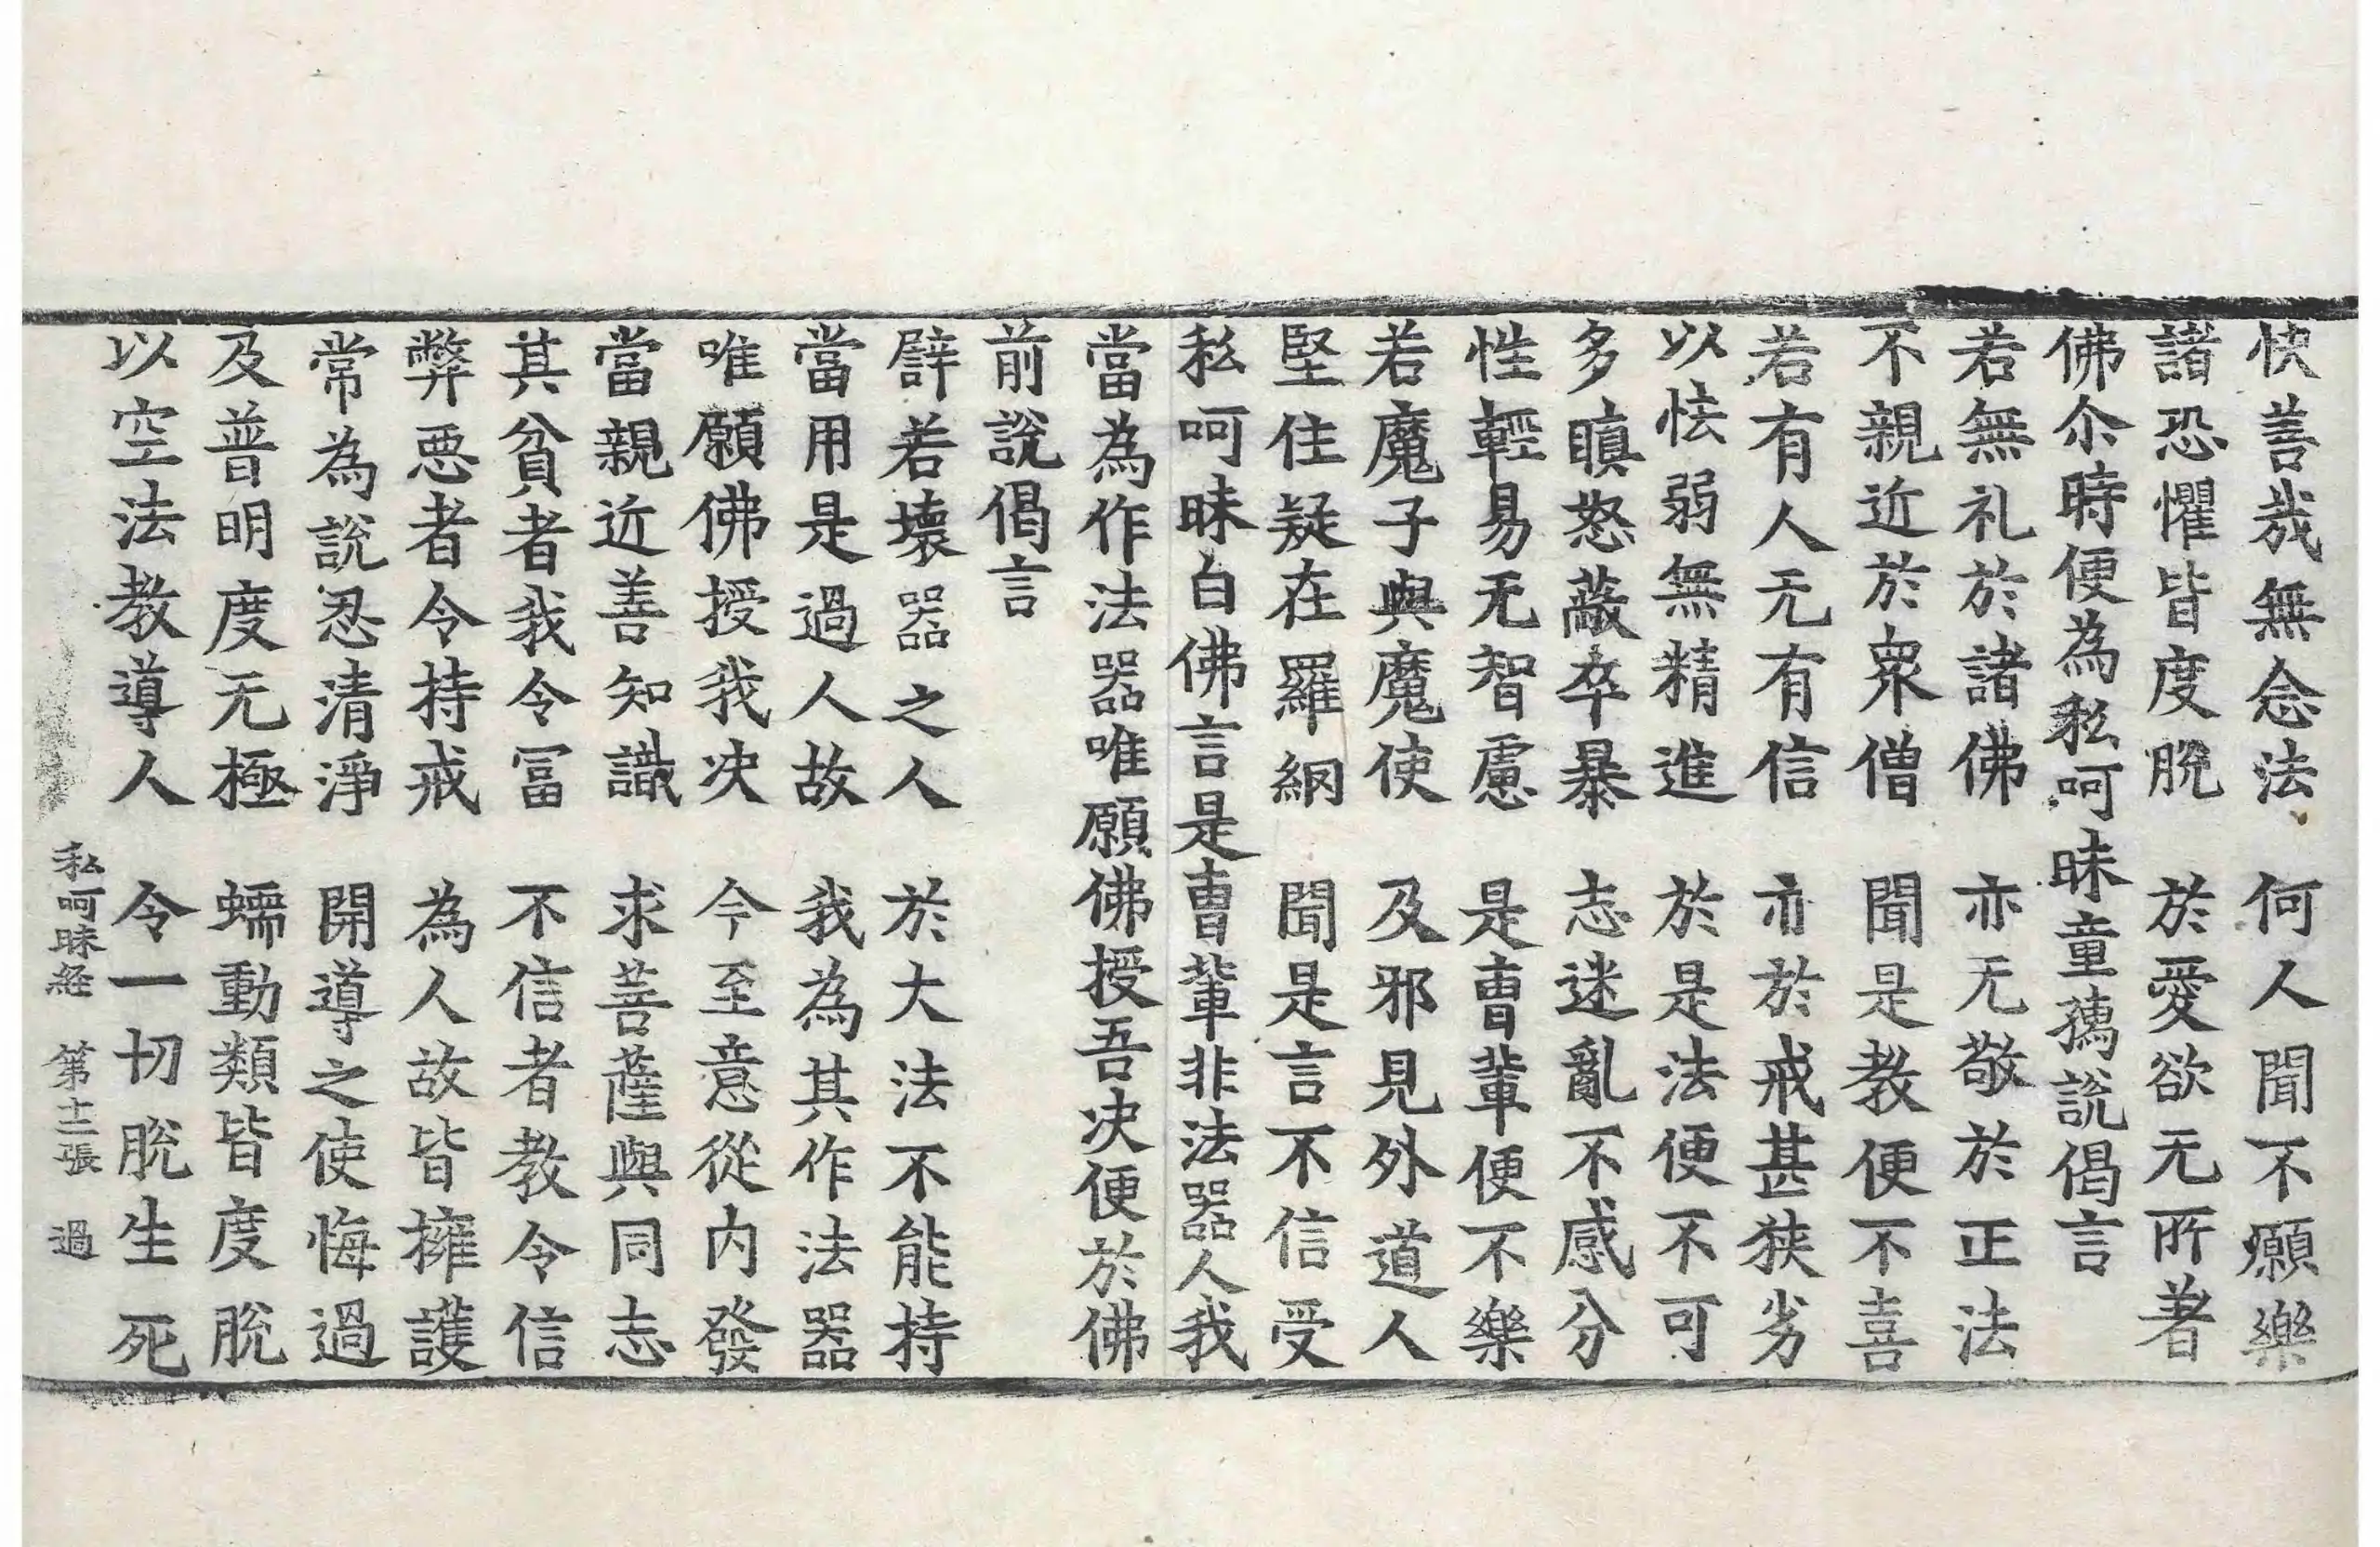 快善哉無念法　何人聞不願樂
諸恐懼皆度脫　於愛欲无所著
佛尒時便為私呵昧童孺說偈言
若無礼於諸佛　亦无敬於正法
不親近於衆僧　聞是教便不喜
若有人无有信　亦於戒甚狹劣
以怯弱無精進　於是法便不可
多瞋怒蔽卒暴　志迷亂不感分
性輕易无智慮　是曹輩便不樂
若魔子與魔使　及邪見外道人
堅住疑在羅網　聞是言不信受
私呵昧白佛言是曹輩非法器人我
當為作法器唯願佛授吾决便於佛
前說偈言
辟若壞器之人　於大法不能持
當用是過人故　我為其作法器
唯願佛授我决　今至意從内發
當親近善知識　求菩薩與同志
其貧者我令冨　不信者教令信
弊惡者令持戒　為人故皆擁護
常為說忍清淨　開導之使悔過
及普明度无極　蠕動類皆度脫
以空法教導人　令一切脫生死
私呵昧経　第十二張　過